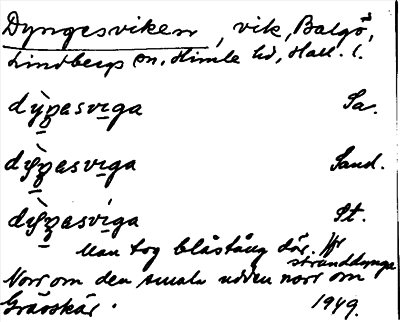 Dyngesviken, vik, Balgö,
Lindbergs sn, Himle hd, Hall. l.
dỳŋasviga Sa.
dỳŋasviga Sand.
dỳŋasviga St.
Man tog blåstång där. Jfr
stranddynga
Norr om den smala udden norr om
Gråoskär. 1949.